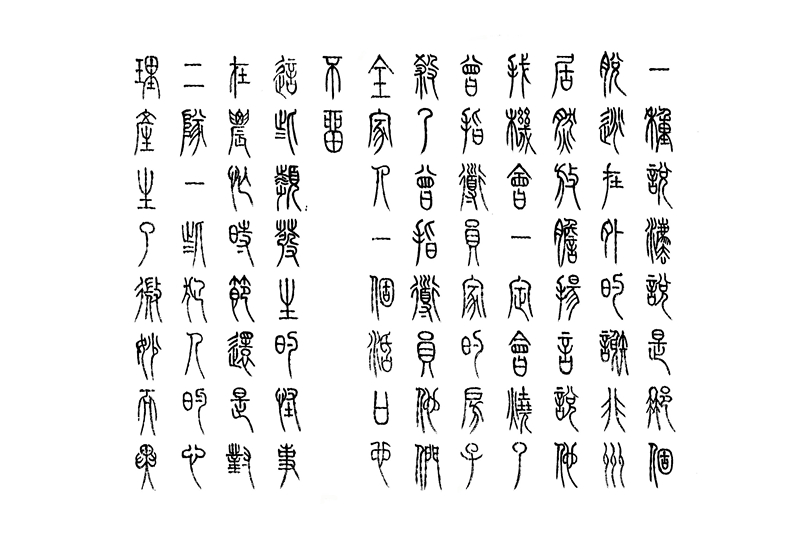 一種說法說是那個
脫逃在外的謝非州
居然放膽揚言說他
找機會一定會燒了
曾指導員家的房子
殺了曾指導員他們
全家人一個活口也
不留
這些發生的怪事
在農忙時節還是對
二隊一些犯人的心
理產生了微妙而異